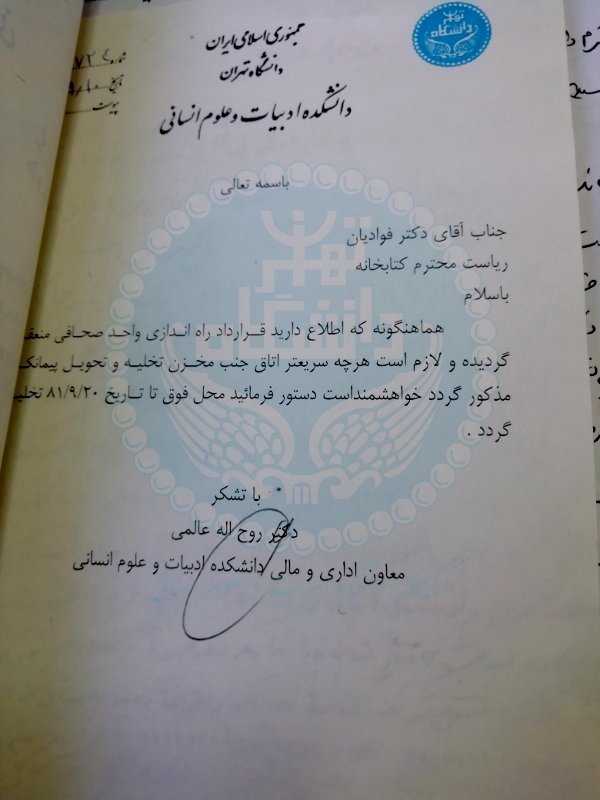 جمهوری اسلامی ایران
دانشگاه تهران
دانشکده ادبیات و علوم انسانی
شماره
تاریخ
پیوست
باسمه تعالی
جناب آقای دکتر فوادیان
ریاست محترم کتابخانه
باسلام
هماهنگونه که اطلاع دارید قرارداد راه اندازی واحد صحافی منعق
گردیده و لازم است هرچه سریعتر اتاق جنب مخزن تخلیه و تحویل پیمانک
مذکور گردد خواهشمنداست دستور فرمائید محل فوق تا تاریخ ۸۱/۹/۲۰ تخلی
گردد .
با تشکر
دکتر روح اله عالمی
معاون اداری و مالی دانشکده ادبیات و علوم انسانی